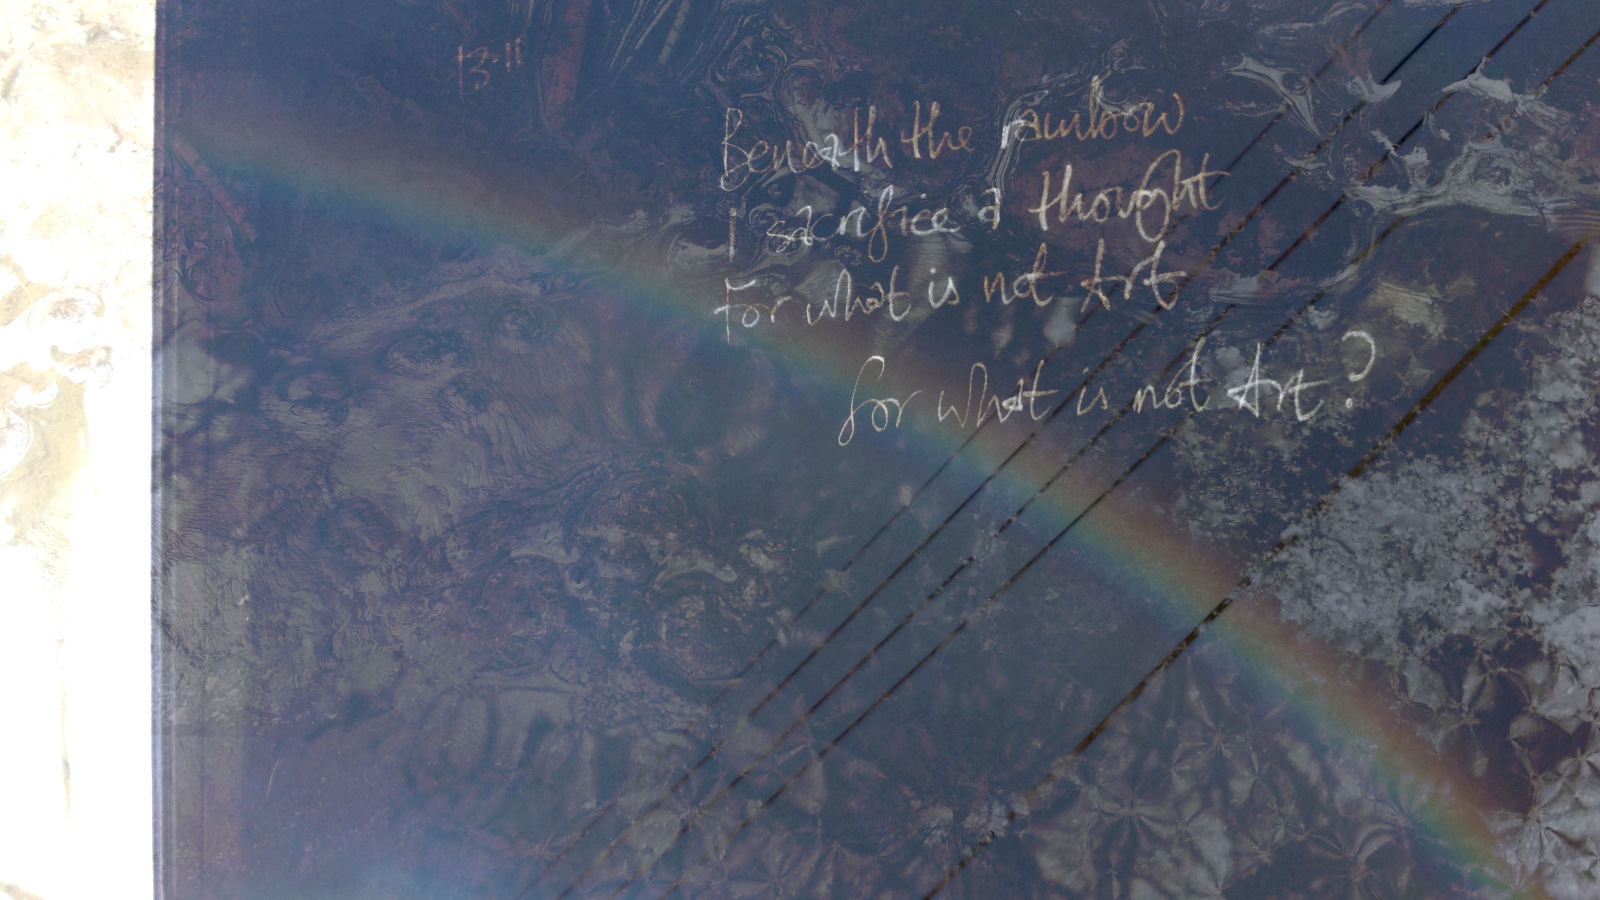 13.11
Beneath the rainbow
I sacrifice a thought
For what is not Art
for what is not Art?